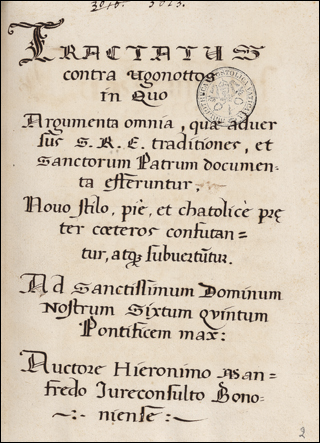 3016. 3015.
TRACTATUS
contra ugonottos
in Quo
Argumenta omnia, quæ adver
sus S. R. E. traditiones, et
Sanctorum Patrum documen-
ta efferuntur,
Novo stilo, piè, et chatolicè prę
ter cœteros confutan=
tur, atq3 subvertūtur.
Ad Sanctissimum Dominum
Nostrum Sixtum Quintum
Pontificem max:
Auctore Hieronimo Man=
fredo Iureconsulto Bono-
niense :~
2